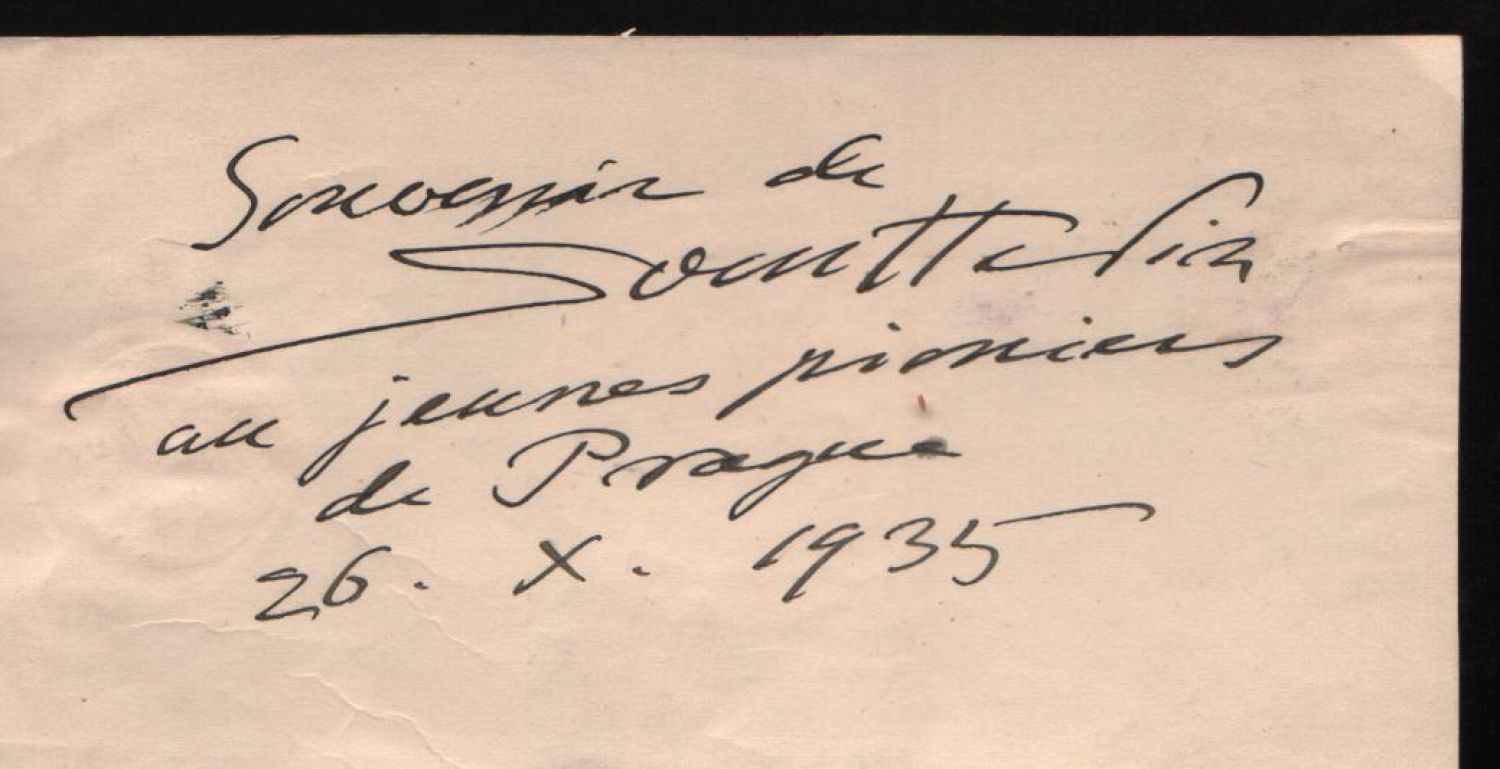 Souvenir de
au jeunes pioniers
de Prague
26. X. 1935